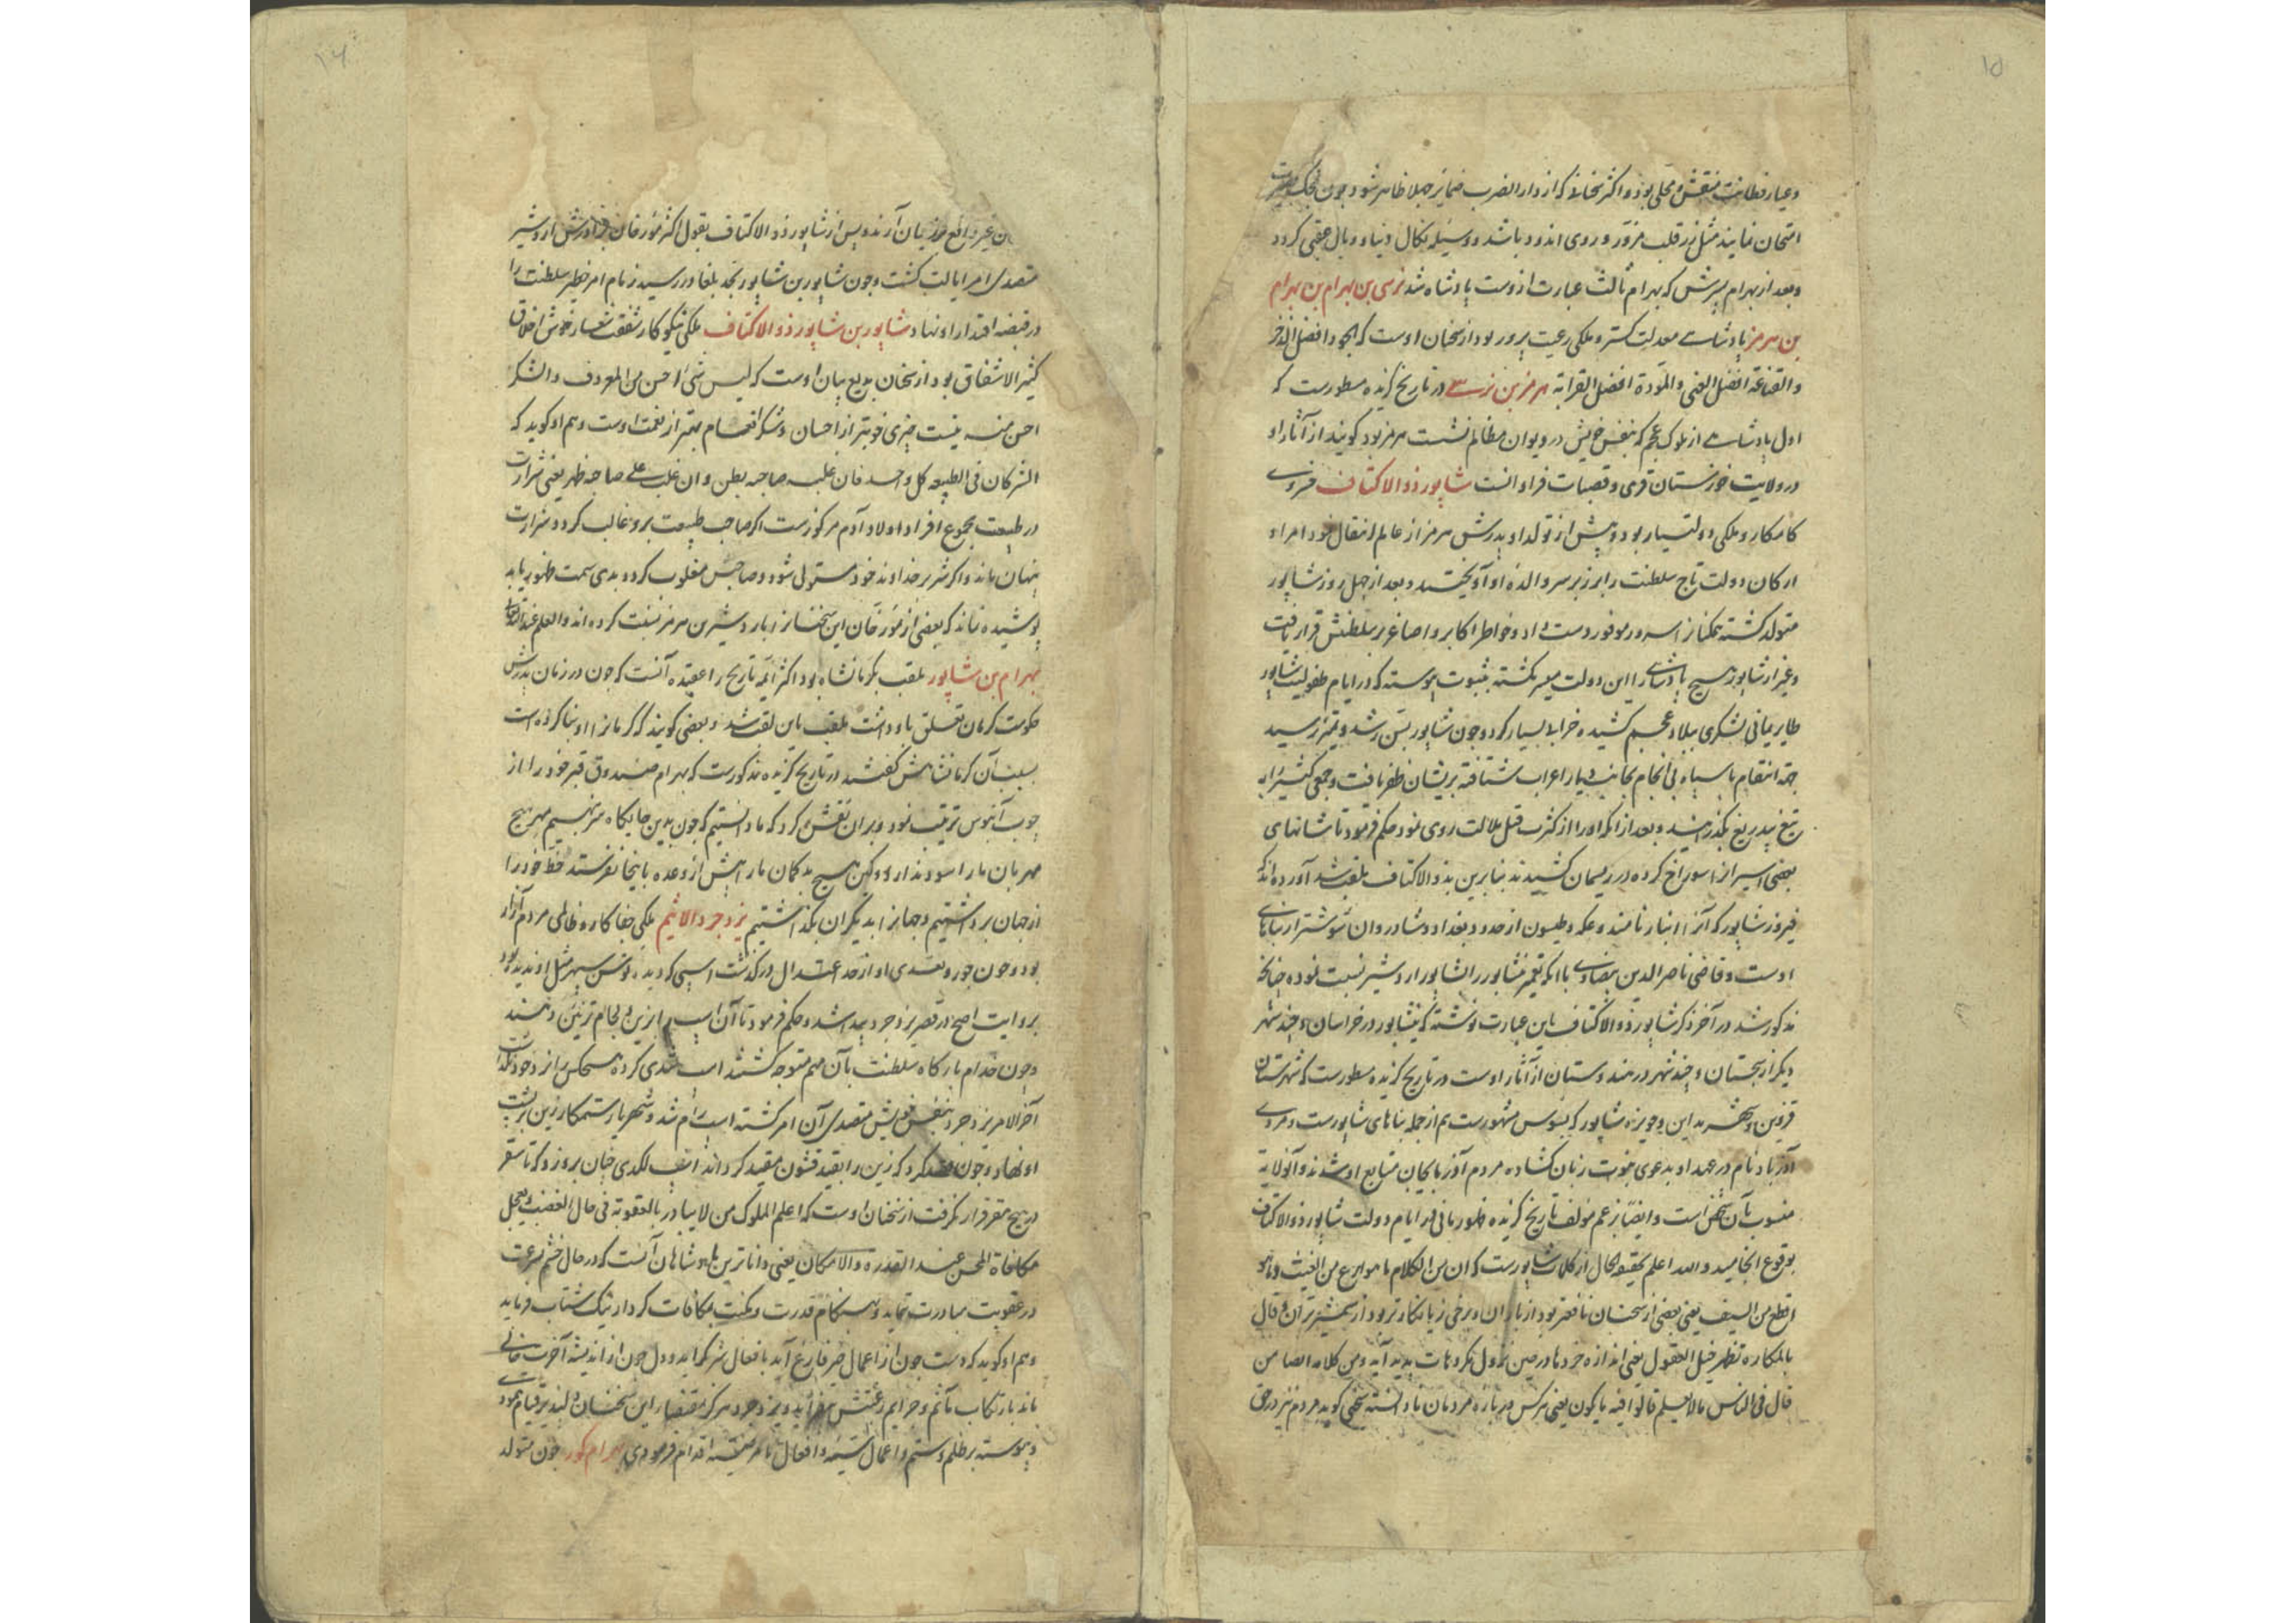 ۱۵
وعیار فطانت منقش و محلی بود و اکثر سخنان که از دار الضرب ضمایر جهلا ظاهر شود چون بمحک بصیرت
امتحان نمایند مثل زر قلب مزوّر و روی اندود باشد و وسیله نکال دنیا و وبال عقبی کردد
وبعد از بهرام پسرش که بهرام ثالث عبارت ازوست پادشاه شد نرسی بن بهرام بن بهرام
بن هرمز پادشاهی معدلت کستر و ملکی رعیت پرور بود از سخنان اوست که الجود افضل الذخر
والقناعة افضل الغنی والمودة افضل القرابة هرمز بن نرسی در تاریخ کزیده مسطورست که
اول پادشاهی از ملوک عجم که بنفس خویش در دیوان مظالم نشست هرمز بود کویند از آثار او
در ولایت خوزستان قری و قصبات فراوانست شاپور ذو الاکتاف خسروی
کامکار و ملکی دولتیار بود و پیش از تولد او پدرش هرمز از عالم انتقال نمود امرا و
ارکان دولت تاج سلطنت را بر زبر سر والدۀ او آویختند و بعد از چهل روز شاپور
متولد کشته همکنانرا سرور موفور دست داد و خواطر اکابر و اصاغر بر سلطنتش قرار یافت
وغیر از شاپور هیچ پادشاهی را این دولت میسر نکشته بثبوت پیوسته که در ایام طفولیت شاپور
طایر یمانی لشکری ببلاد عجم کشیده خرابی بسیار کرد و چون شاپور بسن رشد و تمیز رسید
جهة انتقام با سپاه بی انجام بجانب دیار اعراب شتافته بریشان ظفر یافت و جمعی کثیر را به
تیغ بیدریغ بکذرانید و بعد از انکه او را از کثرت قتل ملالت روی نمود حکم فرمود تا شانهای
بعضی اسیرانرا سوراخ کرده در ریسمان کشیدند بنابرین بذو الاکتاف ملقب شد آورده اند که
فیروز شاپور که آنرا انبار نامند و عکبره و طیسون از حدود بغداد و شادروان شوشتر از بناهای
اوست و قاضی ناصر الدین بیضاوی با انکه تعمیر نشابور را بشاپور اردشیر نسبت نموده چنانکه
مذکور شد در آخر ذکر شاپور ذو الاکتاف باین عبارت نوشته که نیشابور در خراسان و چند شهر
دیکر از سجستان و چند شهر در هندوستان از آثار اوست در تاریخ کزیده مسطورست که شهرستان
قزوین و شهر مداین و جزیره شاپور که بسوس مشهورست هم از جمله بناهای شاپورست و مردی
آذرباد نام در عهد او بدعوی نبوت زبان کشاده مردم آذربایجان متابع او شدند و آنولایة
منسوب بآن شخص است و ایضا بزعم مولف تاریخ کزیده ظهور مانی در ایام دولت شاپور ذو الاکتاف
بوقوع انجامید والله اعلم بحقیقة الحال از کلمات شاپورست که ان من الکلام ما هو انفع من الغیث و ما هو
اقطع من السیف یعنی بعضی از سخنان نافعتر بود از باران و برخی زیانکارتر بود از شمشیر بران و قال
بالمکاره تظهر حیل العقول یعنی اندازه خردها در حین نزول مکروهات پدید آید ومن کلامه ایضا من
قال فی الناس ما لا یعلم قالوا فیه ما یکون یعنی هرکس در باره مردمان نادانسته سخنی کوید مردم نیز در حق
۱۶
ان غیر واقع بر زبان آرند و پس از شاپور ذو الاکتاف بقول اکثر مورخان برادرش اردشیر
متصدی امر ایالت کشت و چون شاپور بن شاپور بحد بلوغ در رسید زمام امر خطیر سلطنت را
در قبضه اقتدار او نهاد شاپور بن شاپور ذو الاکتاف ملکی نیکوکار شفقت شعار خوش اخلاق
کثیر الاشفاق بود از سخنان بدیع بیان اوست که لیس شیٔ احسن من المعروف والشکر
احسن منه نیست چیزی خوبتر از احسان و شکر انعام بهتر از نعمت اوست و هم او کوید که
الشر کان فی الطبیعه کل واحد فان غلبه صاحبه بطن وان غلب علی صاحبه ظهر یعنی شرارت
در طبیعت مجموع افراد اولاد آدم مرکوزست اکر صاحب طبیعت برو غالب کردد شرارت
پنهان ماند و اکر شر بر خداوند خود مستولی شود و صاحبش مغلوب کردد بدی سمت ظهور یابد
پوشیده نماند که بعضی از مورخان این سخنانرا باردشیر بن هرمز نسبت کرده اند والعلم عند الله تعالی
بهرام بن شاپور ملقب بکرمانشاه بود اکثر ائمه تاریخ را عقیده آنست که چون در زمان پدرش
حکومت کرمان تعلق باو داشت ملقب باین لقب شد و بعضی کویند که کرمانرا او بنا کرده است
بسبب آن کرمانشاهش کفتند در تاریخ کزیده مذکورست که بهرام صندوق قبر خود را از
چوب آبنوس ترتیب نمود و بران نقش کرد که ما دانستیم که چون بدین جایکاه سر نهیم مهر هیچ
مهربان ما را سود ندارد و کین هیچ بدکمان ما را پیش از وعده باینجا نفرستد حظ خود را
از جهان برداشتیم و جهانرا بدیکران بکذاشتیم یزدجرد الاثیم ملکی جفاکار و ظالمی مردم آزار
بود و چون جور و تعدی او از حد اعتدال درکذشت اسپی که دیده بوس سپهر مثل او ندیده بود
بروایت اصح در قصر یزدجرد پیدا شد و حکم فرمود تا آن اسب را بزین و لجام تزیین دهند
وچون خدام بارکاه سلطنت بآن مهم متوجه کشتند اسب تندی کرده هیچکس را نزد خود نکذاشت
آخر الامر یزدجرد بنفس خویش متصدی آن امر کشته اسب رام شد و شهریار ستمکار زین بر پشت
او نهاد و چون قصد کرد که زین را بقید قشون مقید کرداند اسب لکدی چنان برو زد که تا سقر
در هیچ مقر قرار نکرفت از سخنان اوست که اعلم الملوک من لا یبادر بالعقوبة فی حال الغضب و یعجل
مکافاة المحسن عند القدرة والامکان یعنی داناترین پادشاهان آنست که در حال خشم بسرعت
در عقوبت مبادرت ننماید و هنکام قدرت و مکنت بمکافات کردار نیک شتاب فرماید
وهم او کوید که دست چون از اعمال خیر فارغ آید بافعال شر کراید و دل چون از اندیشه آخرت خالی
ماند بارتکاب مآثم و جرایم رغبتش بیفزاید و یزدجرد هرکز بمقتضای این سخنان بلند برقیام ننمود
وپیوسته بر ظلم و ستم و اعمال سیئه و افعال نامرضیه اقدام فرمودی بهرام کور چون متولد